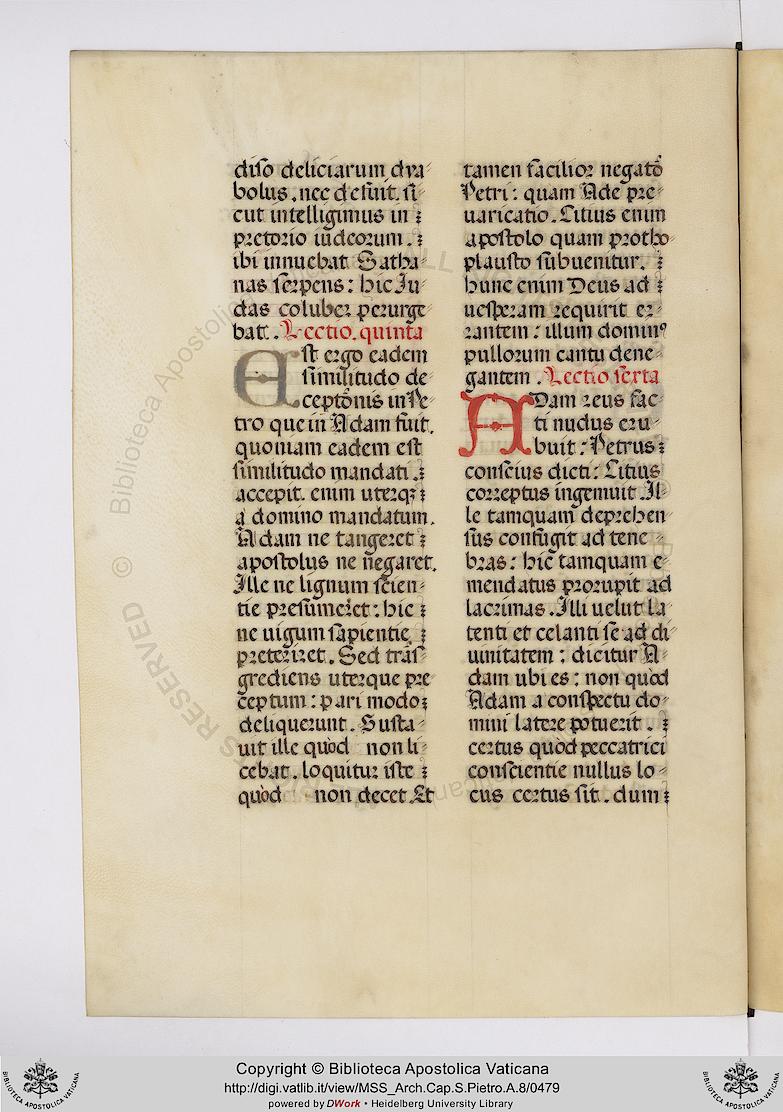 diso deliciarum dya-
bolus. nec defuit. si-
cut intelligimus in
pretorio iudeorum.
ibi innuebat Satha-
nas serpens: hic Ju-
das coluber perurge
bat. Lectio. quinta
Est ergo eadem
similitudo de
ceptõnis in Pe-
tro que in Adam fuit.
quoniam eadem est
similitudo mandati.
accepit. enim uterqꝫ
a domino mandatum.
Adam ne tangeret
apostolus ne negaret.
Ille ne lignum scien-
tie presumeret: hic
ne uigum sapientie
preteriret. Sed trãs-
grediens uterque pre
ceptum: pari modo
deliquerunt. Gusta-
uit ille quòd non li-
cebat. loquitur iste
quòd non decet. Et
tamen facilior negatõ
Petri: quam Ade pre-
uaricatio. Citius enim
apostolo quam protho-
plausto subuenitur.
hunc enim Deus ad
uesperam requirit er-
rantem: illum dominꝰ
pullorum cantu dene-
gantem. Lectio sexta
ADam reus fac-
ti nudus eru-
buit: Petrus
conscius dicti: Citius
correptus ingemuit. Il-
le tamquam deprehen-
sus confugit ad tene-
bras: hic tamquam e-
mendatus prorupit ad
lacrimas. Illi uelut la-
tenti et celanti se ad di-
uinitatem: dicitur A-
dam ubi es: non quòd
Adam a conspectu do-
mini latere potuerit.
certus quòd peccatrici
conscientie nullus lo-
cus certus sit. dum
Copyright © Biblioteca Apostolica Vaticana
http://digi.vatlib.it/view/MSS_Arch.Cap.S.Pietro.A.8/0479
powered by DWork • Heidelberg University Library